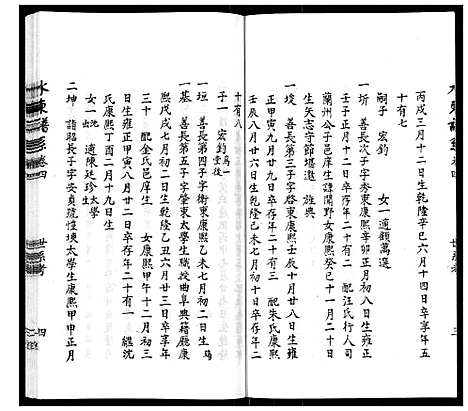 丙戌三月十二日生乾隆辛巳六月十四日卒享年五
十有七
嗣子 宏鈞 女一適顧萬選
一圻 善長次子字秀東康熙辛卯正月初八日生雍正
壬子正月十二日卒存年二十有二 配汪氏行人司
蘭州公子邑庠生諱開野女康熙癸巳十一月二十日
生矢志守節堪邀 旌典
一埈 善長第三子字啓東康熙壬辰十月廿八日生雍
正甲寅九月廿九日卒存年二十有三 配朱氏康熙
壬辰八月廿六日生乾隆己未七月初三日卒存年二
十有八
子一 宏鈞為一堂後
一垣 善長第四子字術東康熙乙未七月初二日生
一基 善長第五子字肇東太學生職授曲阜典籍廳康
熙戊戌七月初二日生乾隆乙丑六月廿三日卒享年
三十 配金氏邑庠生 女康熙甲午十二月初三
日生雍正甲寅八月廿四日卒存年二十有一 繼沈
氏康熙丁酉二月十九日生
女一 沈出 適陳廷珍太學生
二坤 諧昭長子字安貞號性瑛太學生康熙甲申正月
水東譜系 卷四 世系考
四